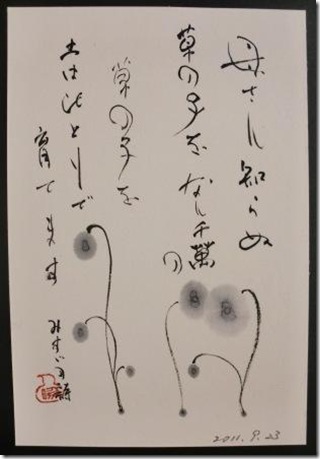 母さん知らぬ
草の子を なん千萬
の
草の子を
土はひとりで
育てます
みすゞの詩
2011. 9. 23